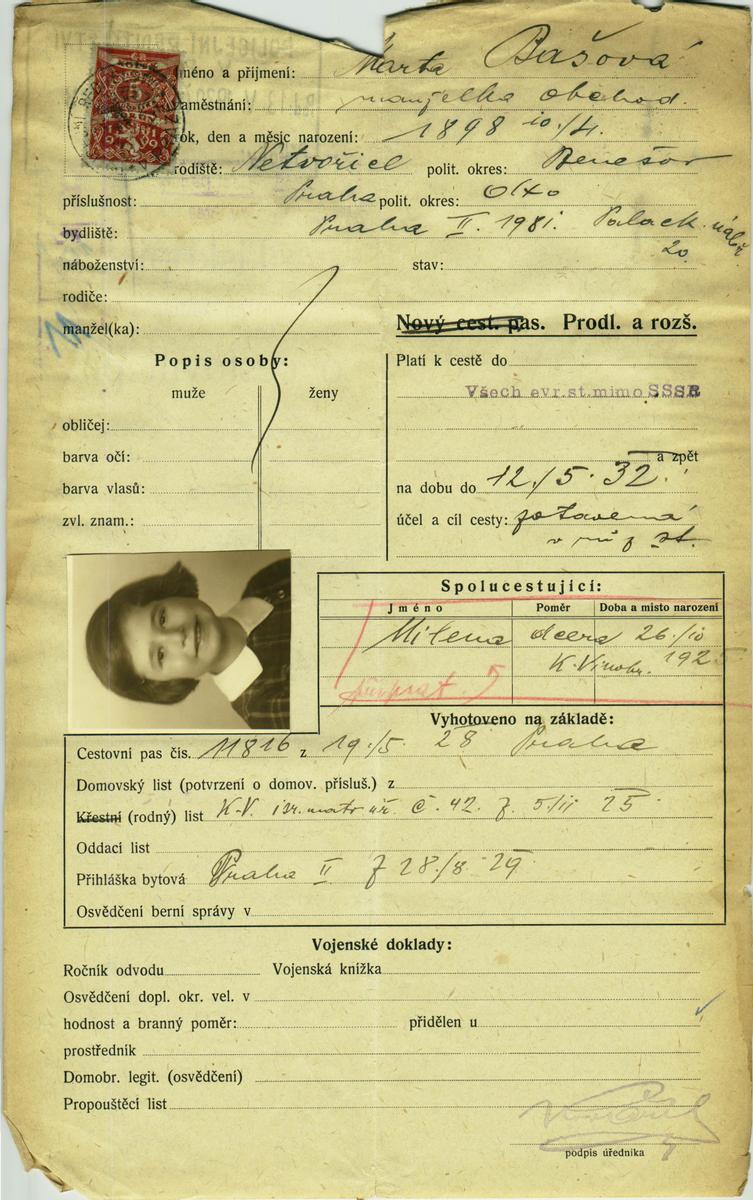 Jméno a přijmení: Marta Bašová
zaměstnání: manželka obchod.
rok, den a měsíc narození: 1898 10/4.
rodiště: Netvořice polit. okres: Benešov
příslušnost: Praha polit. okres: dtto
bydliště: Praha II. 1981. Palack. nábř.
20
náboženství: stav:
rodiče:
manžel(ka):
Nový cest. pas. Prodl. a rozš.
Popis osoby:
muže ženy
obličej:
barva očí:
barva vlasů:
zvl. znam.:
Platí k cestě do
Všech evr.st.mimo SSSR
a zpět
na dobu do 12./5. 32.
účel a cíl cesty:
st.
Spolucestující:
Jméno Poměr Doba a místo narození
Milena dcera 26./10
K. Vinohr. 1925
Vyhotoveno na základě:
Cestovní pas čís. 11816 z 19./5. 28 Praha
Domovský list (potvrzení o domov. přísluš.) z
Křestní (rodný) list K.V. isr. matr. úř. č. 42. z 5/11 25
Oddací list
Přihláška bytová Praha II z 28./8. 29.
Osvědčení berní správy v
Vojenské doklady:
Ročník odvodu Vojenská knížka
Osvědčení dopl. okr. vel. v
hodnost a branný poměr: přidělen u
prostředník
Domobr. legit. (osvědčení)
Propouštěcí list
podpis úředníka